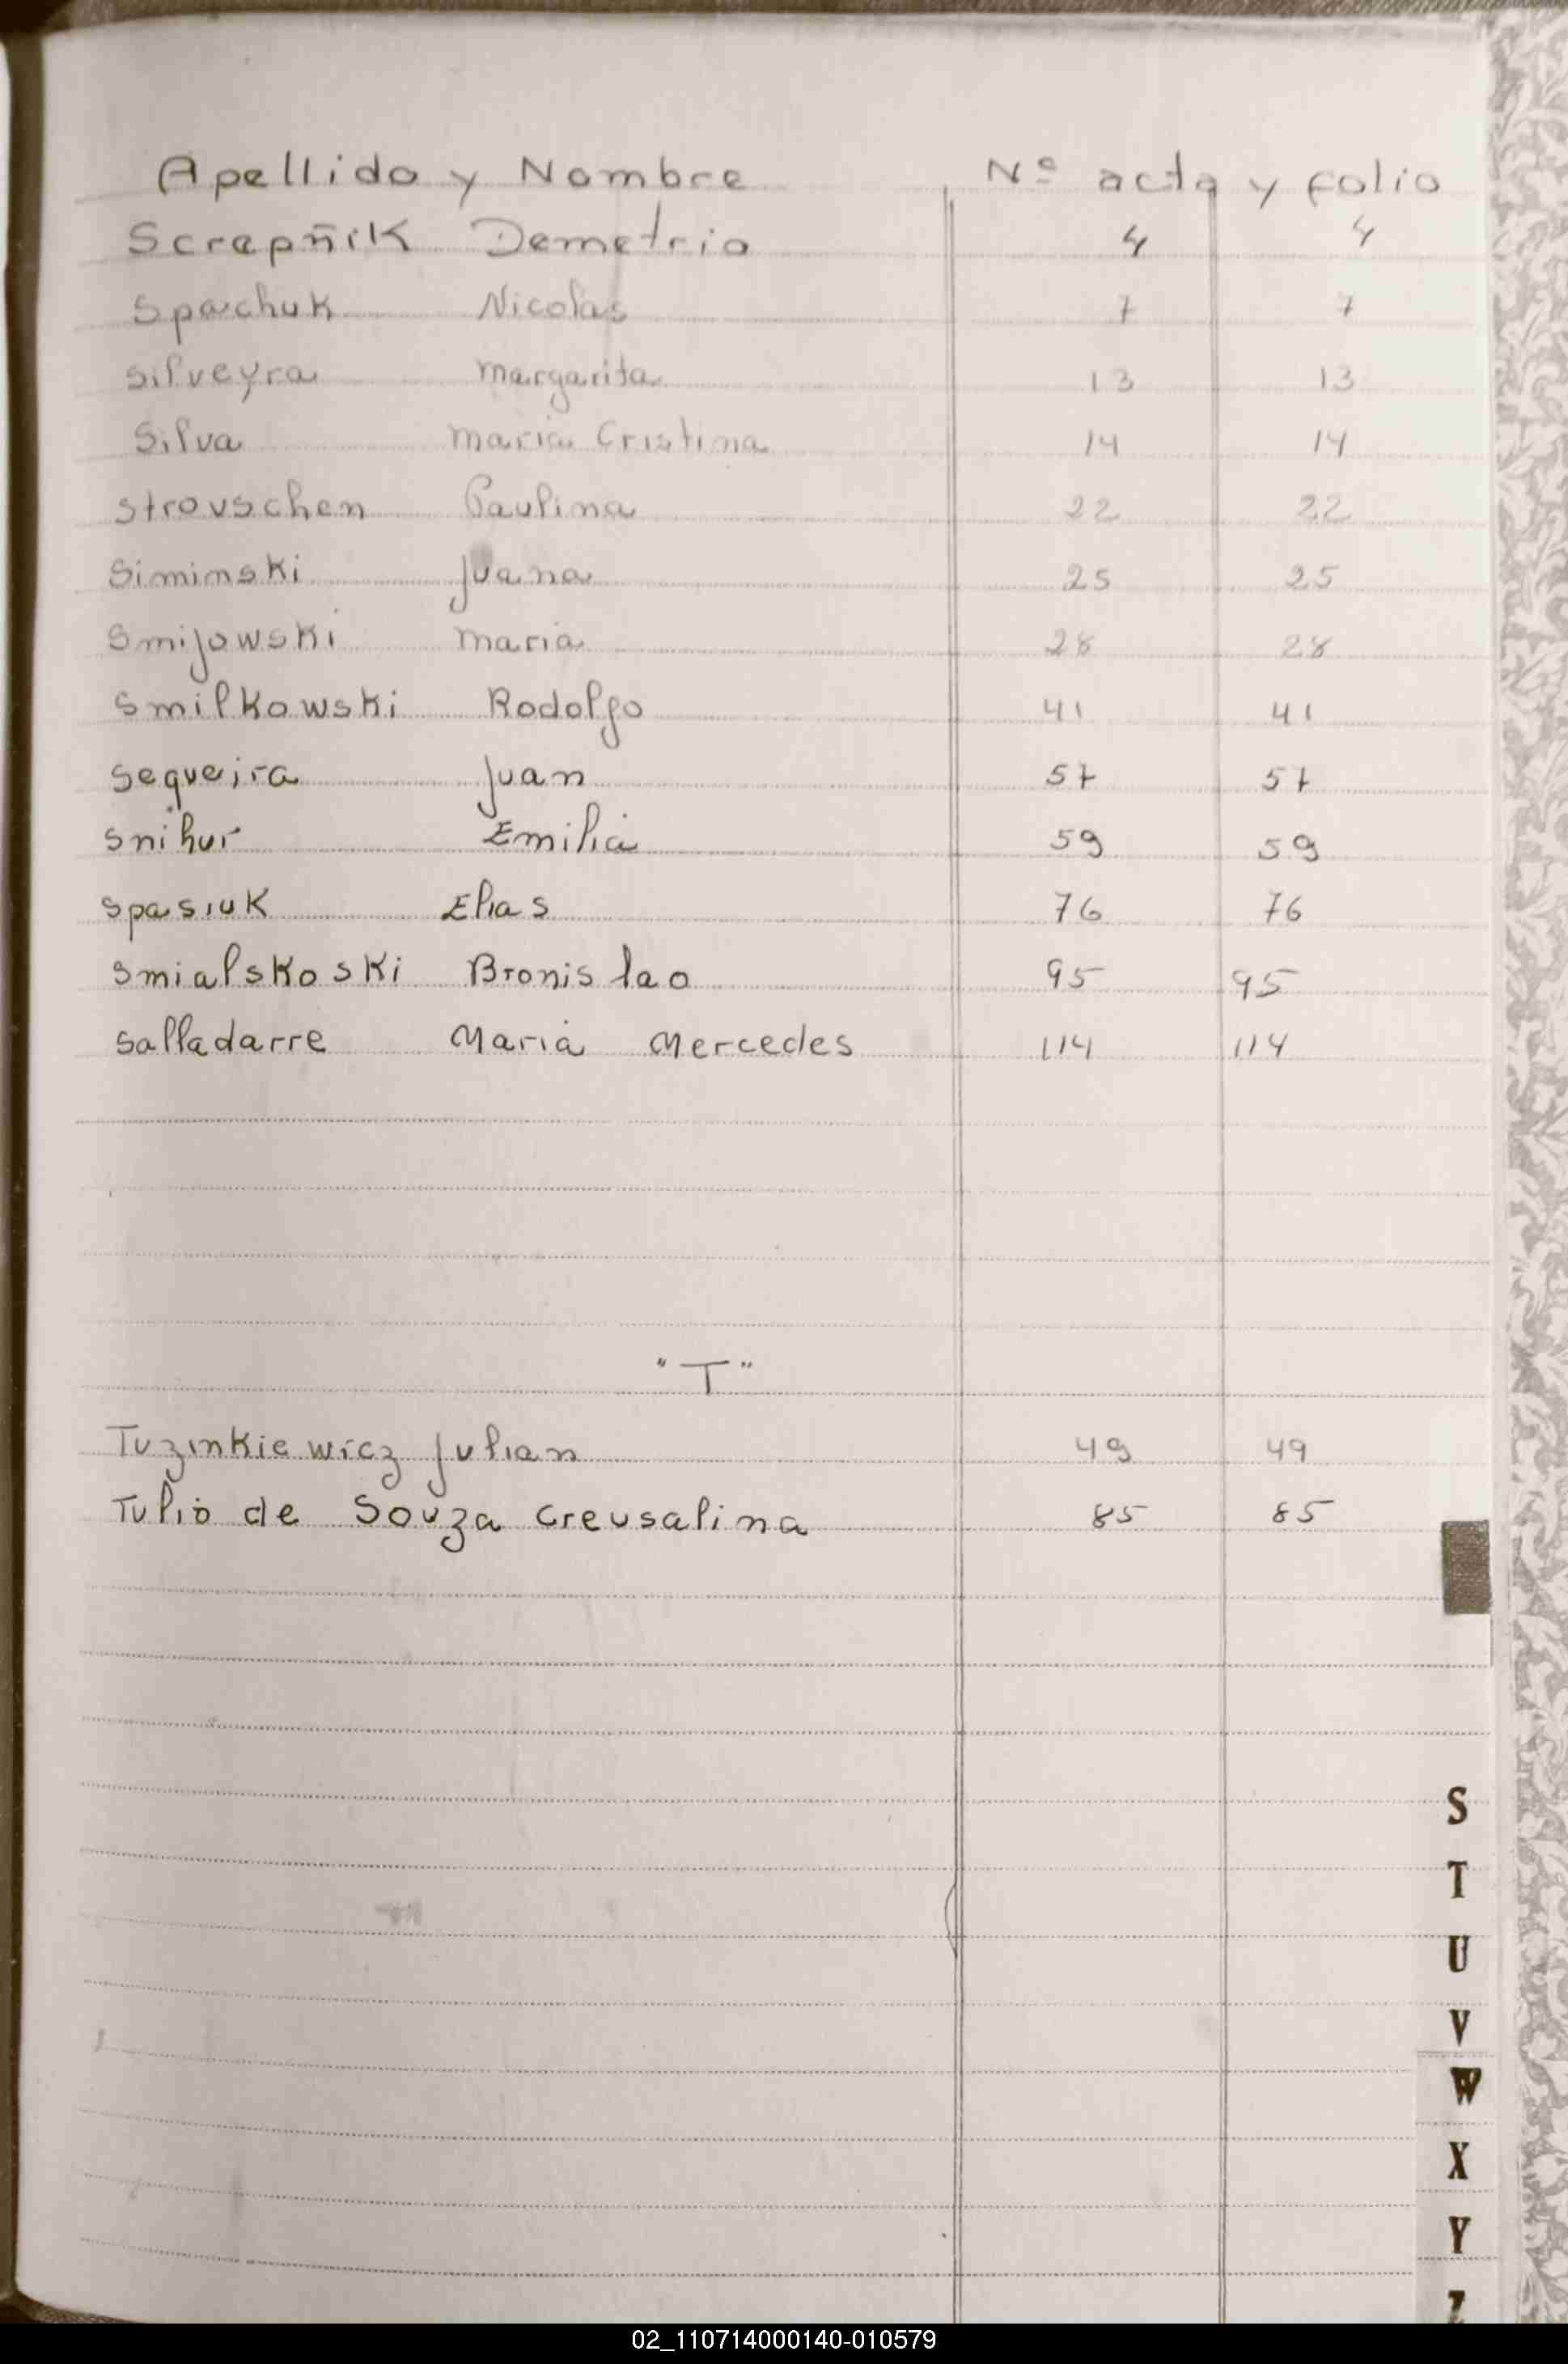 Apellido y Nombre Nº acta y folio
Screpñik Demetrio 4 4
Spachuk Nicolas 7 7
Silveyra Margarita 13 13
Silva Maria Cristina 14 14
Strovschen Paulina 22 22
Siminski Juana 25 25
Smijowski Maria 28 28
Smilkowski Rodolfo 41 41
Sequeira Juan 57 57
Snihur Emilia 59 59
Spasiuk Elias 76 76
Smialskoski Bronislao 95 95
Salladarre Maria Mercedes 114 114
"T"
Tuzinkiewicz Julian 49 49
Tulio de Souza Creusalina 85 85
S
T
U
V
W
X
Y
Z
02_110714000140-010579